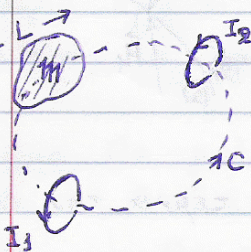 L → I₂
m
C
I₁